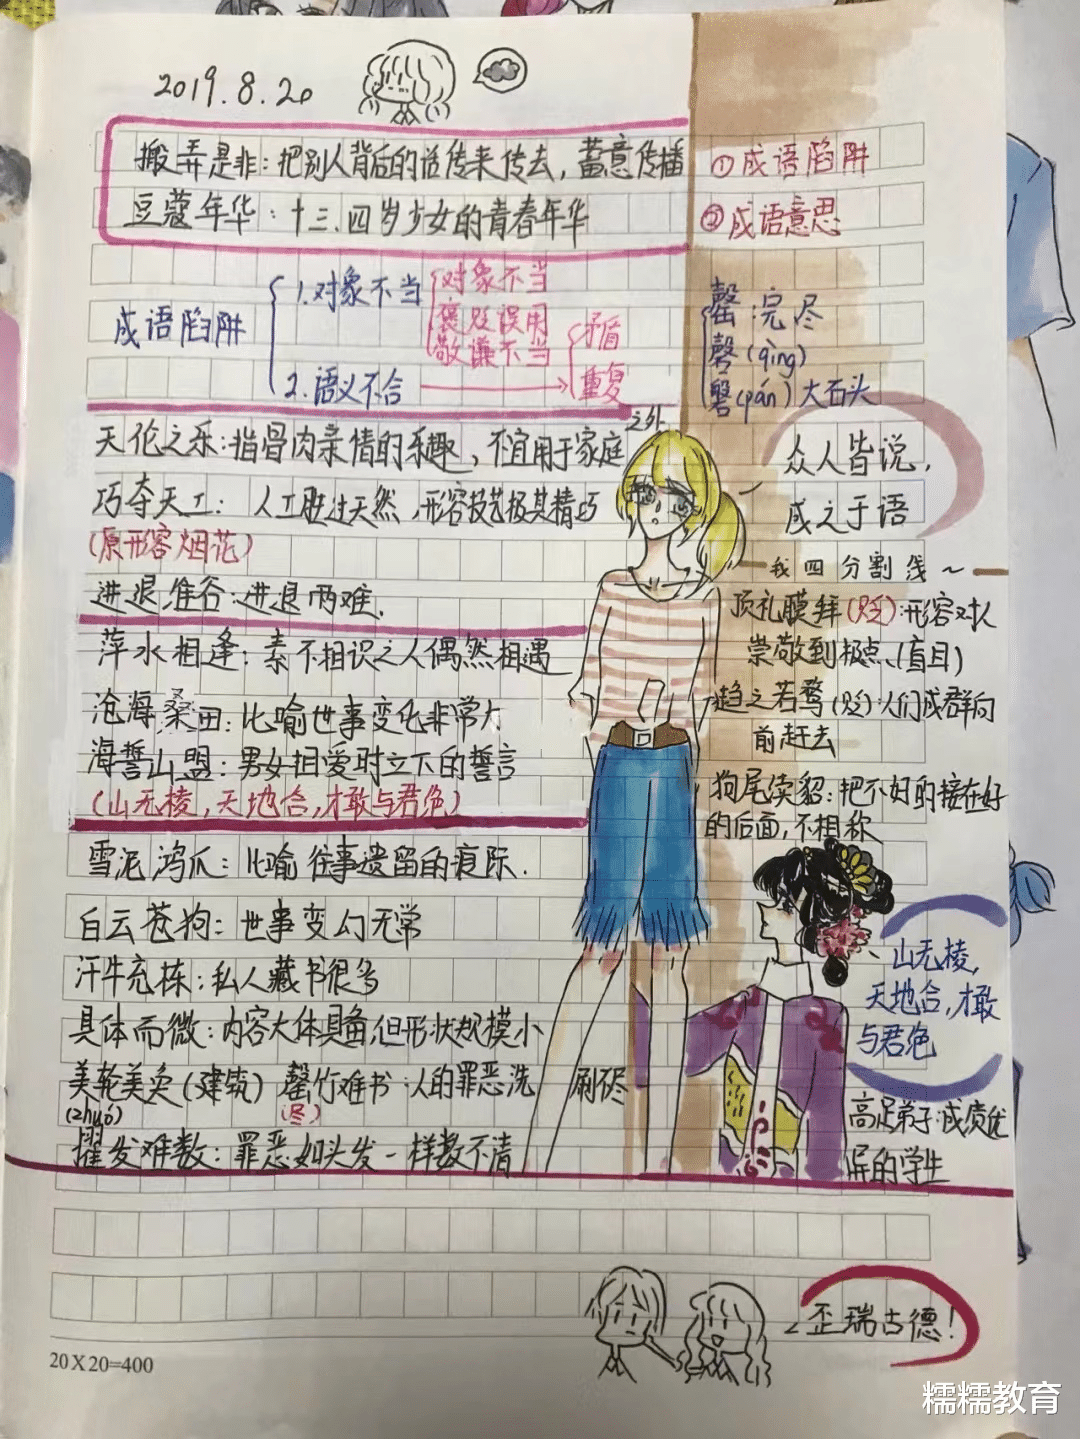 2019.8.20
搬弄是非：把别人背后的话传来传去，蓄意传播
豆蔻年华：十三、四岁少女的青春年华
①成语陷阱
②成语意思
成语陷阱
1.对象不当
对象不当
褒贬误用
敬谦不当
2.语义不合
矛盾
重复
罄：完尽
磬(qìng)
磐(pán)大石头
天伦之乐：指骨肉亲情的乐趣，不宜用于家庭之外
巧夺天工：人工胜过天然，形容技艺极其精巧
(原形容烟花)
进退维谷：进退两难.
众人皆说，
成之于语
我四分割线～
萍水相逢：素不相识之人偶然相遇
沧海桑田：比喻世事变化非常大
海誓山盟：男女相爱时立下的誓言
(山无棱，天地合，才敢与君绝)
顶礼膜拜(贬)：形容对人
崇敬到极点、(盲目)
趋之若鹜(贬)：人们成群向
前赶去
狗尾续貂：把不好的接在好
的后面，不相称
雪泥鸿爪：比喻往事遗留的痕际.
白云苍狗：世事变幻无常
汗牛充栋：私人藏书很多
具体而微：内容大体具备，但形状规模小
美轮美奂(建筑) 罄竹难书：人的罪恶洗刷尽
(zhuó)
(尽)
擢发难数：罪恶如头发一样数不清
山无棱，
天地合，才敢
与君绝
高足弟子：成绩优
屏的学生
歪瑞古德！
20X20=400
糯糯教育